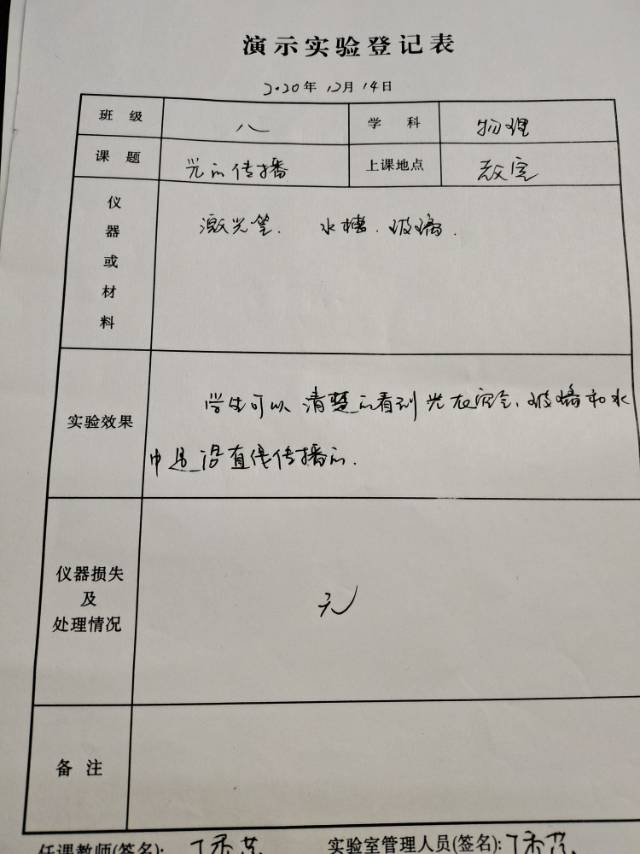 演示实验登记表
2020年12月14日
班级 八 学科 物理
课题 光的传播 上课地点 教室
仪器或材料 激光笔. 水槽. 玻璃.
实验效果 学生可以清楚的看到光在空气、玻璃和水
中是沿直线传播的.
仪器损失及处理情况 无
备注
任课教师(签名): 实验室管理人员(签名):